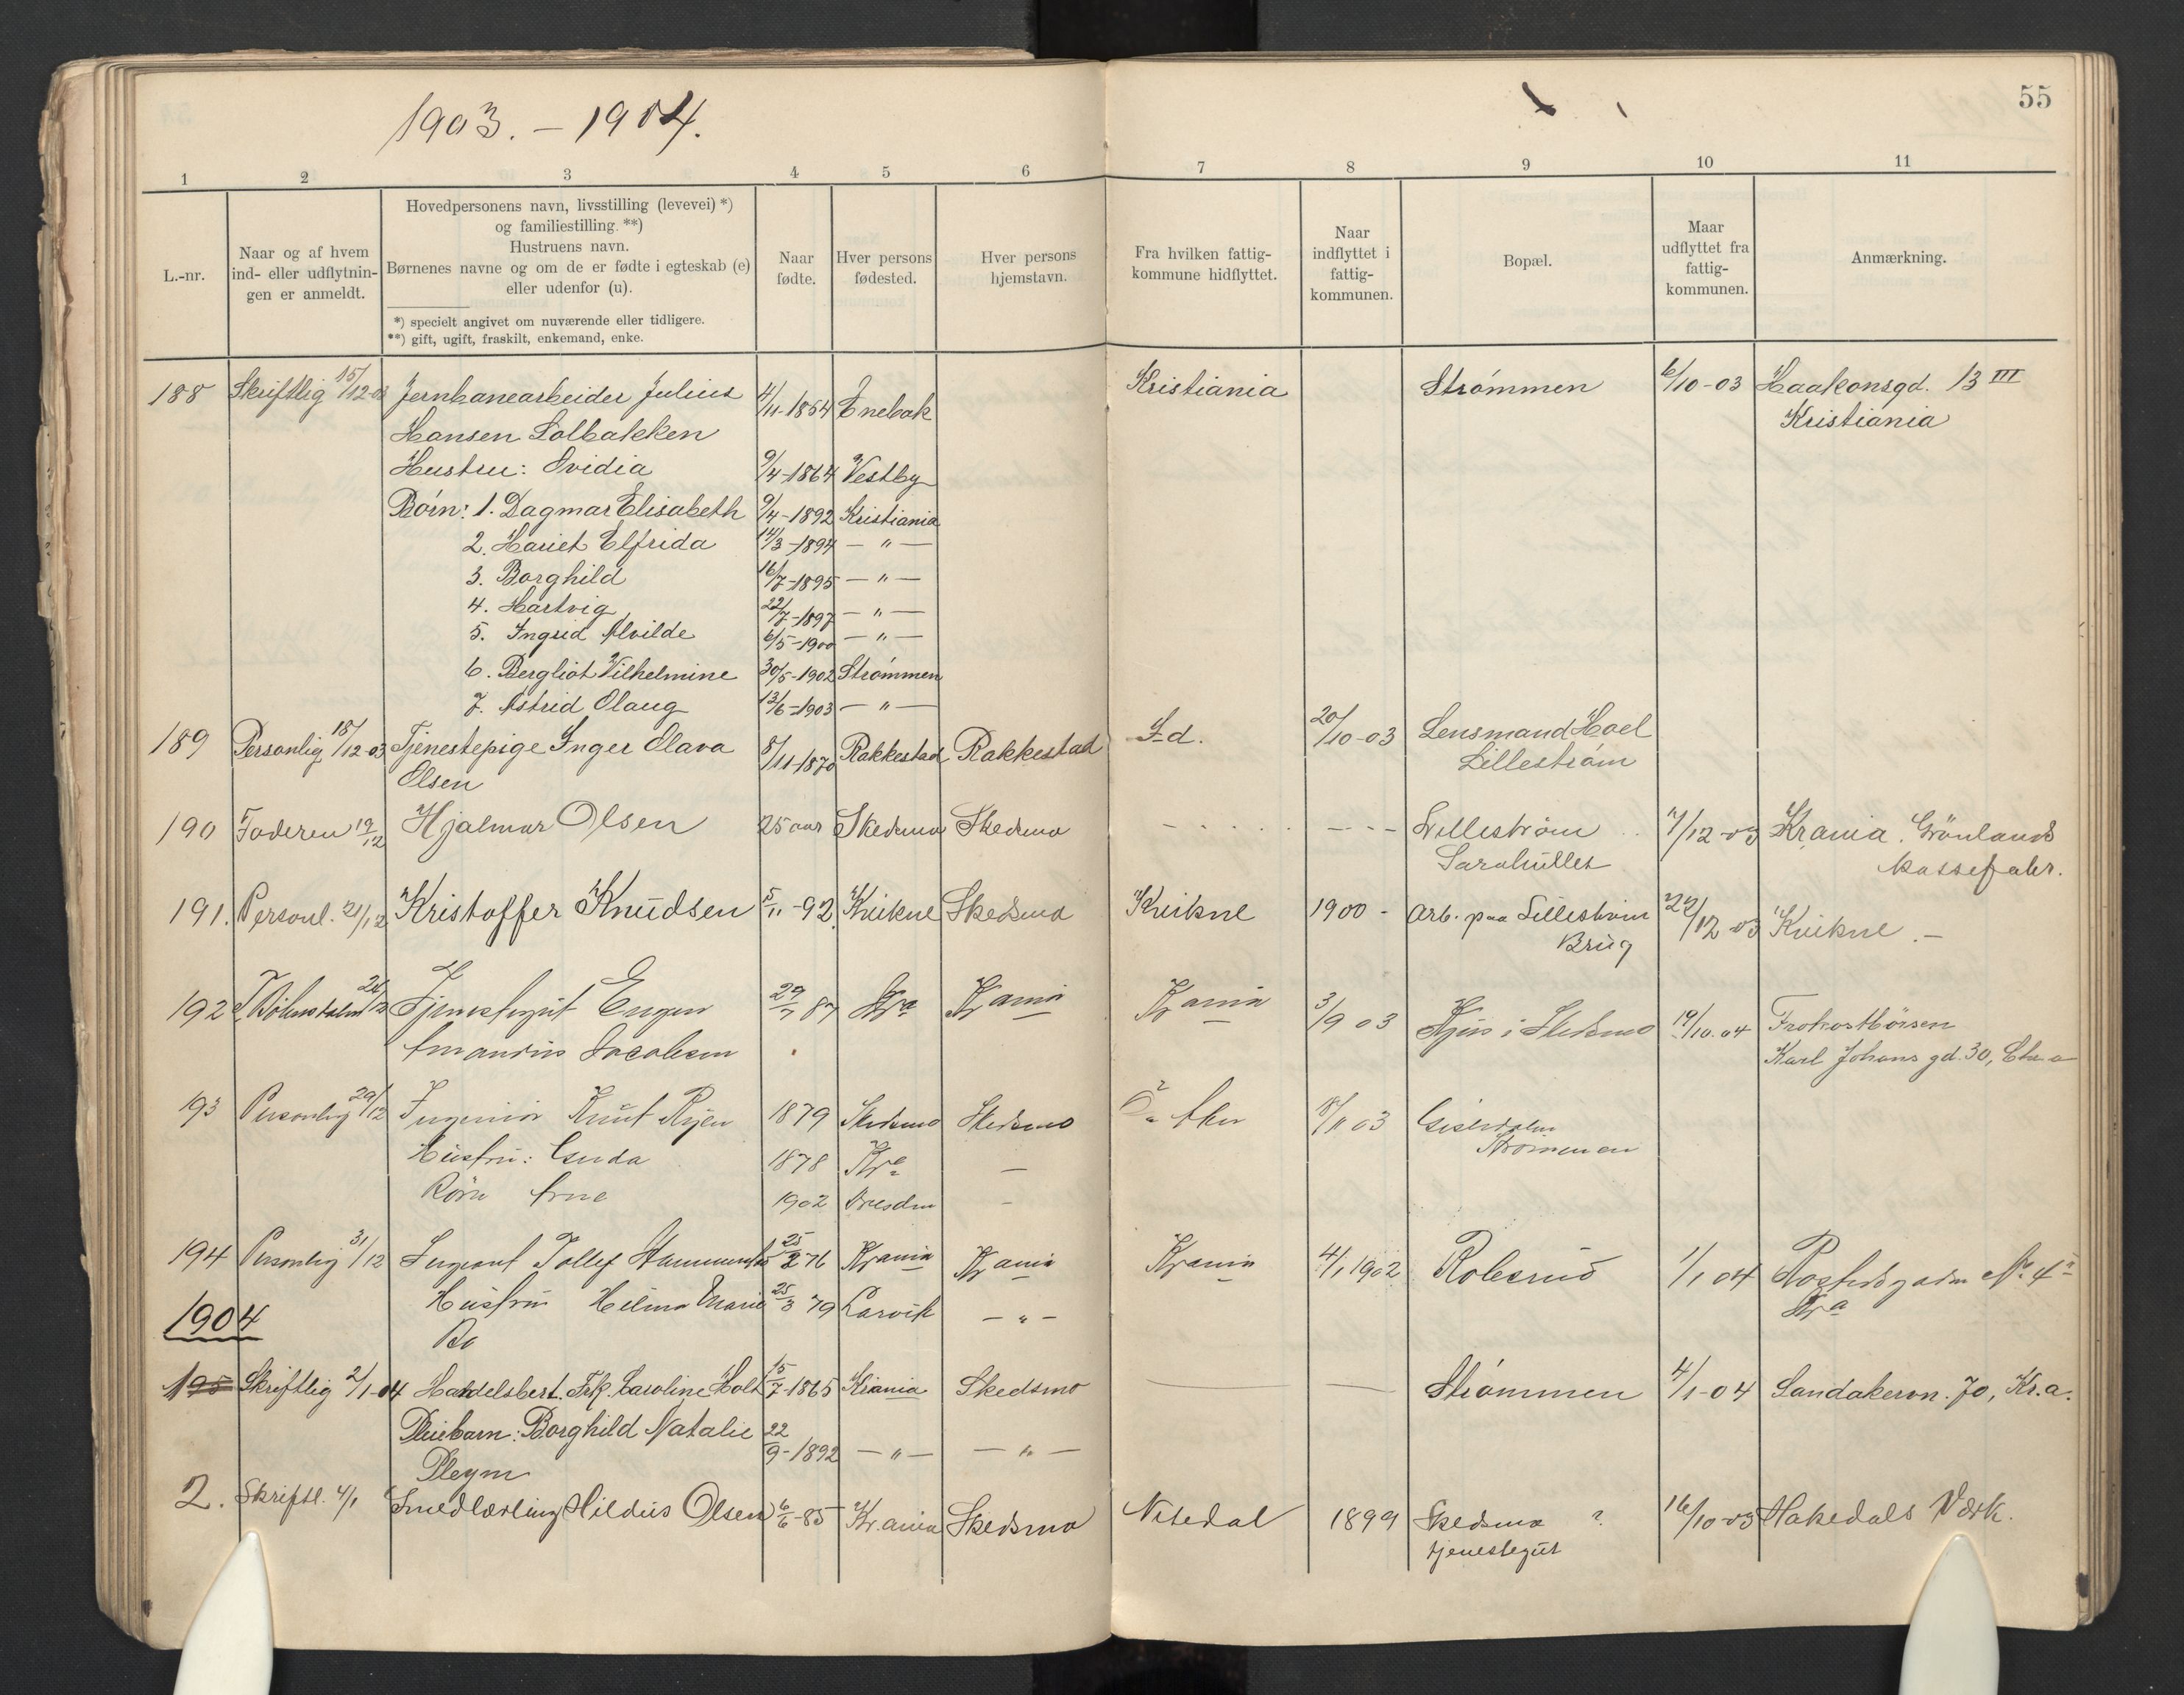 1903. – 1904.
55
1 2 3 4 5 6 7 8 9 10 11
L.-nr.
Naar og af hvem
ind- eller udflytnin-
gen er anmeldt.
Hovedpersonens navn, livsstilling (levevei) *)
og familiestilling. **)
Hustruens navn.
Børnenes navne og om de er fødte i egteskab (e)
eller udenfor (u).
*) specielt angivet om nuværende eller tidligere.
**) gift, ugift, fraskilt, enkemand, enke.
Naar
fødte.
Hver persons
fødested.
Hver persons
hjemstavn.
Fra hvilken fattig-
kommune hidflyttet.
Naar
indflyttet i
fattig-
kommunen.
Bopæl.
Maar
udflyttet fra
fattig-
kommunen.
Anmærkning.
188 Skriftlig 15/12-03 Jernbanearbeider Julius 4/11-1854 Enebak Kristiania Strømmen 6/10-03 Haakonsgd. 13 III
Hansen Solbakken Kristiania
Hustru: Ovidia 9/4-1864 Vestby
Børn: 1. Dagmar Elisabeth 9/4-1892 Kristiania
2. Hariet Elfrida 14/3-1894 — " —
3. Borghild 16/7-1895 — " —
4. Hartvig 22/7-1897 — " —
5. Ingrid Alvilde 6/5-1900 — " —
6. Bergliot Vilhelmine 30/5-1902 Strømmen
7. Astrid Olaug 13/6-1903 — " —
189 Personlig 18/12-03 Tjenestepige Inger Olava 8/11-1870 Rakkestad Rakkestad I-d. 20/10-03 Lensmand Hoel
Olsen Lillestrøm
190 Faderen 19/12 Hjalmar Olsen 25 aar Skedsmo Skedsmo - - - - - - - Lillestrøm 7/12-03 Krania. Grønlands
Sarahullet
191. Personl. 21/12 Kristoffer Knudsen 5/11-92. Kvikne Skedsmo Kvikne 1900 - Arb. paa Lillestrøm 22/12-03 Kvikne. –
Brug
192 24/12 Tjenestegut Eugen 29/7 87 Kra Krania Krania 3/9 03 i Skedsmo 19/10.04 Frokostbørsen
Amandus Jacobsen Karl Johans gd. 30, Chr.a
193 Personlig 29/12 Ingeniør Knut Ryen 1879 Skedsmo Skedsmo Ø. Aker 18/11 03
Hustru: 1878 Kra — Strømmen
Børn Arne 1902 Dresden –
194 Personlig 31/12 Sergeant Tollef 25/2 76 Krania Krania Krania 4/1 1902 Robsrud 1/1 04 No 4
Hustru Hilma Marie 25/3 79 Larvik — " — Kra
1904
Bo
195 Skriftlig 2/1-04 Handelsbest. Frk. Caroline Holt 15/7-1865 Krania Skedsmo — — Strømmen 4/1-04 Sandakervn. 70, Kr.a.
Pleiebarn: Borghild Natalie 22/9-1892 — " — — " —
Pleym
2. Skriftl. 4/1 Smedlærling Hildus Olsen 6/6-85 Kr.ania Skedsmo Nitedal 1899 Skedsmo ? 16/10-03 Hakedals Værk.
tjenestegut